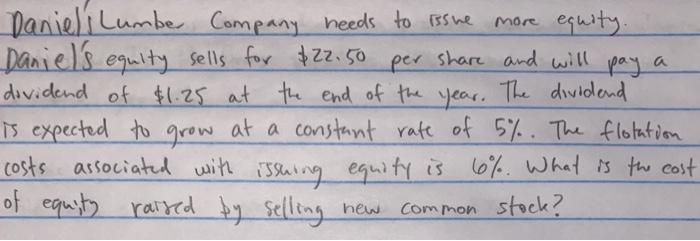 Daniel's Lumber Company needs to issue more equity.
Daniel's equity sells for $22.50 per share and will pay a
dividend of $1.25 at the end of the year. The dividend
is expected to grow at a constant rate of 5%. The flotation
costs associated with issuing equity is 6%. What is the cost
of equity raised by selling new common stock?